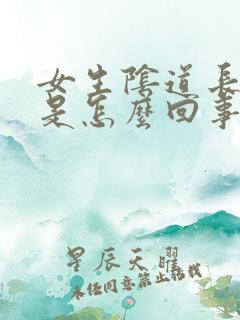 女生陰道長
是怎麼回事
星辰天曜
未经同意禁止转载